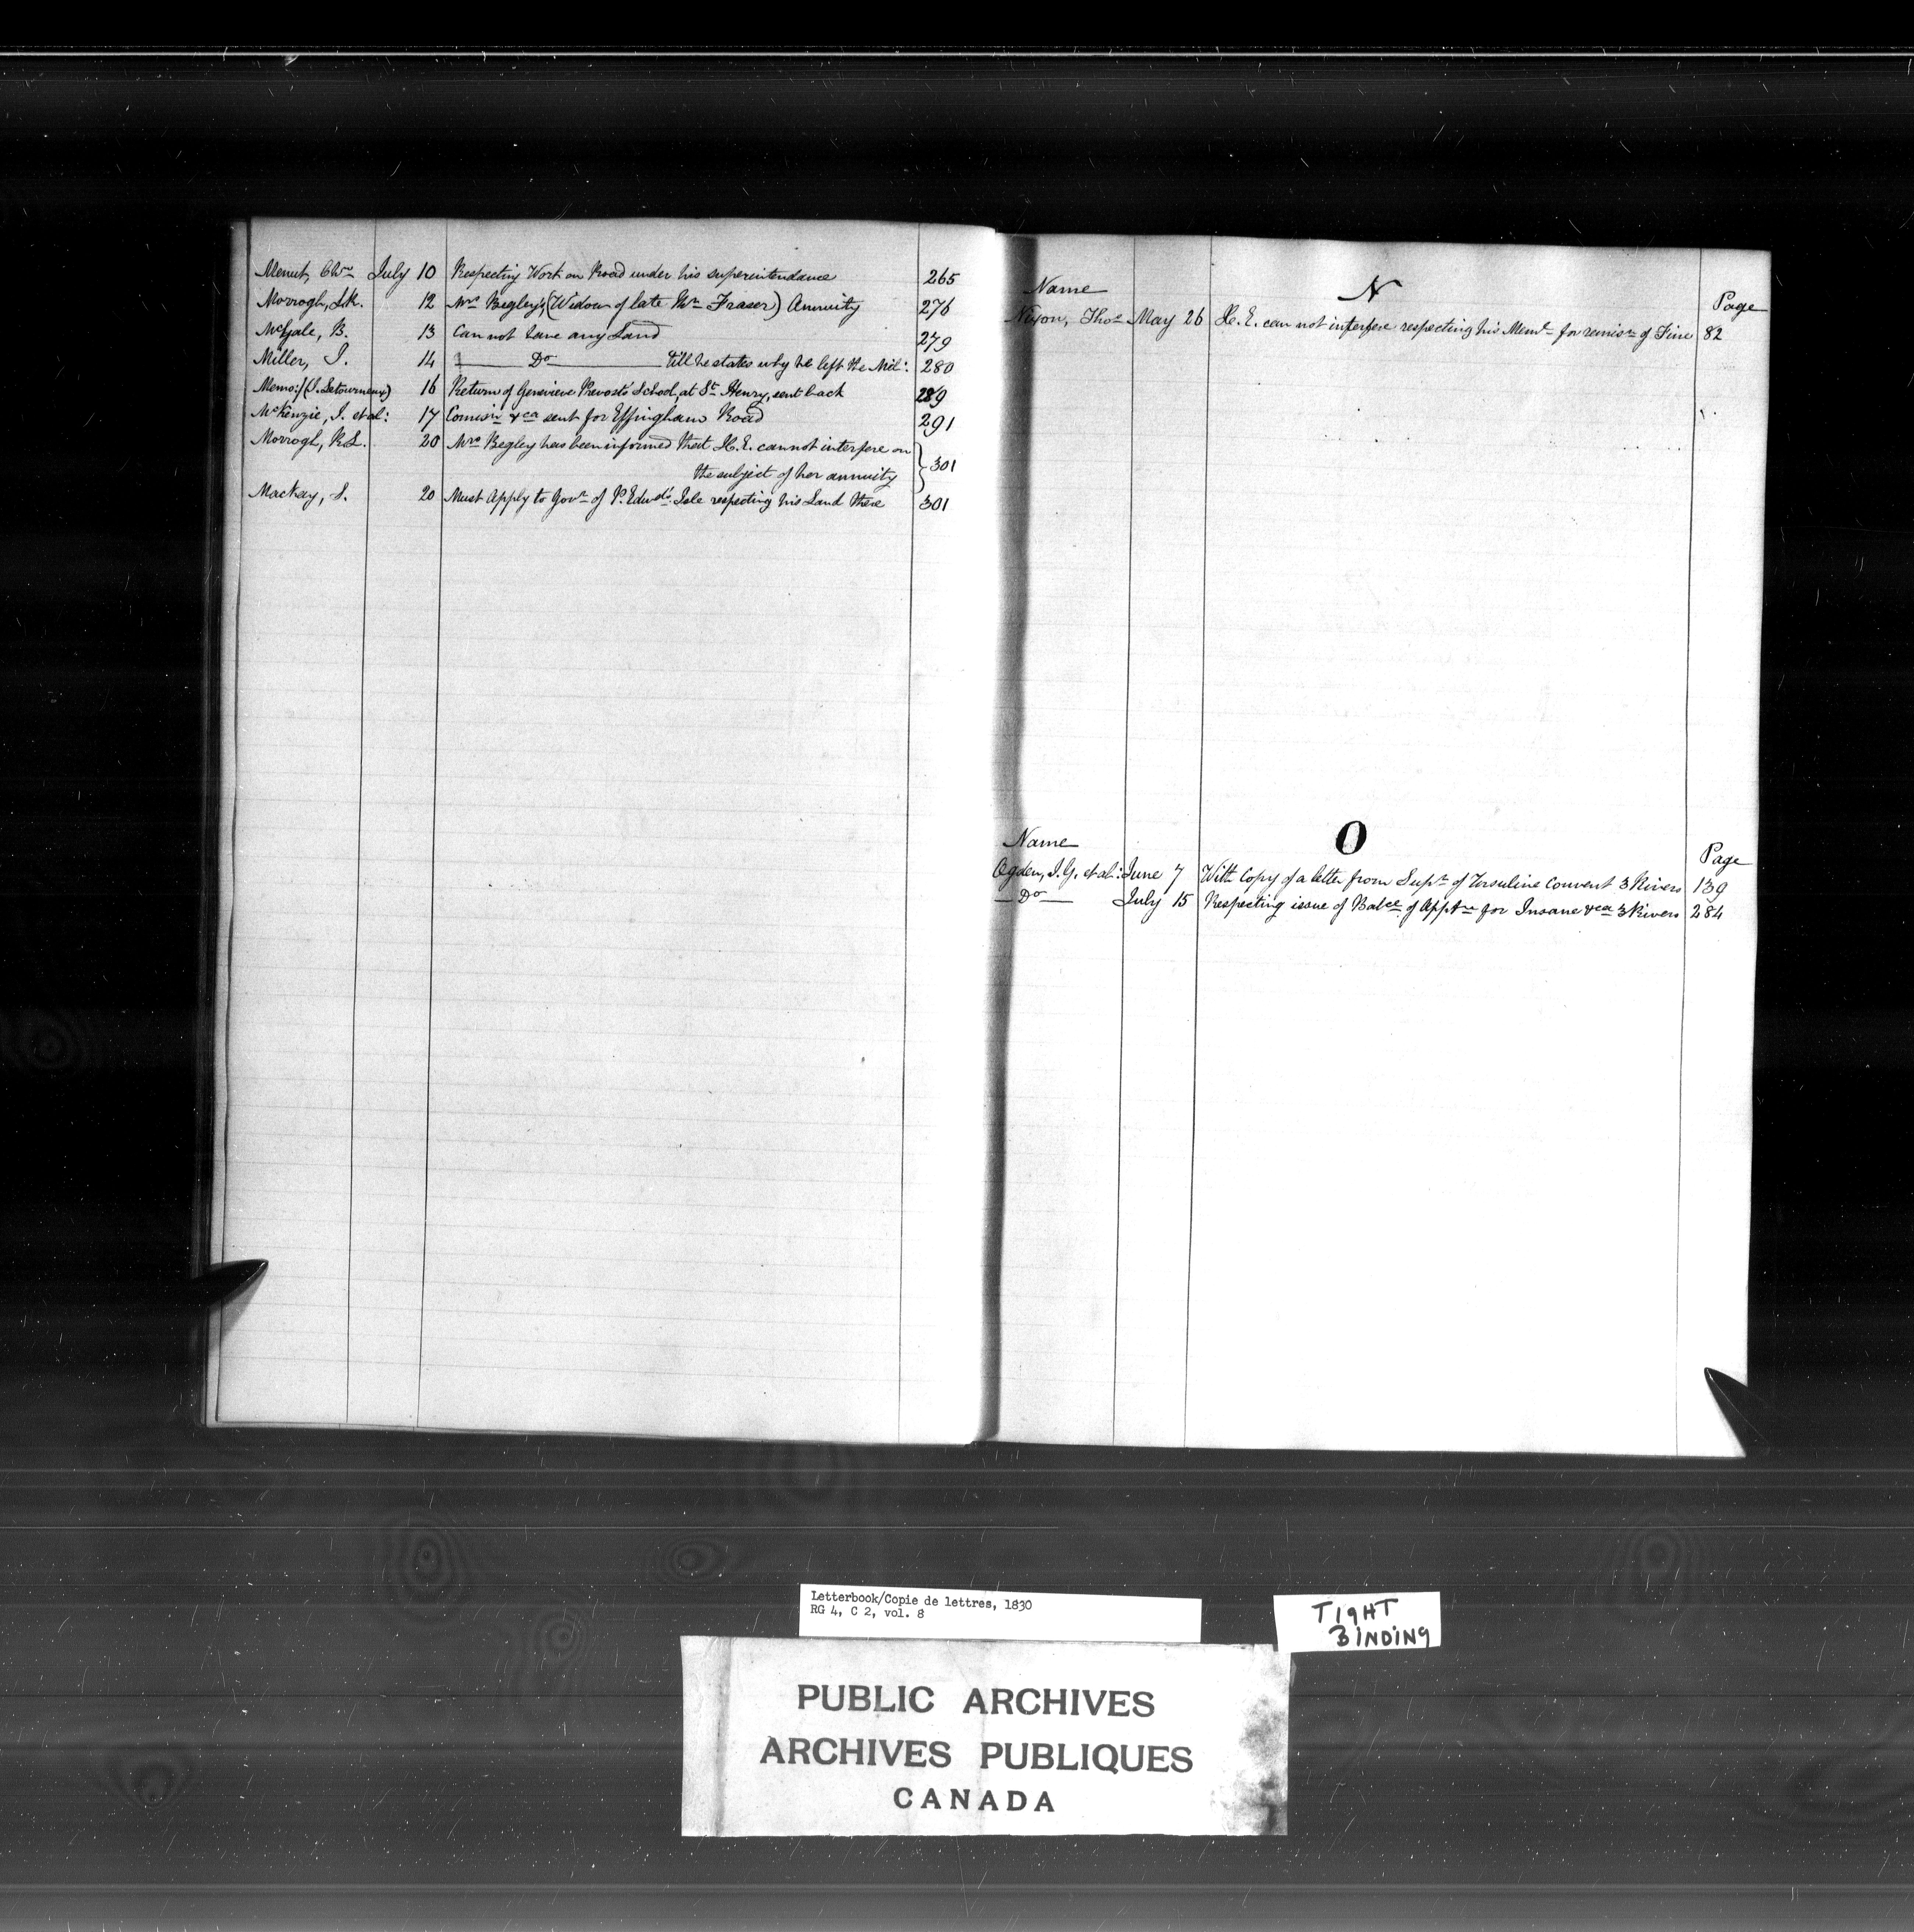 Menut, Chs July 10 Respecting Work on Road under his superintendance 265
Morrogh, 12 Mrs Begley's (Widow of late Wm Fraser) Annuity 276
McGale, B. 13 Cannot have any Land 279
Miller, J. 14 Do till he states why he left the Mil: 280
Memo:/(J. Letourneux) 16 Return of Genevieve Prevost's School, at St Henry, sent back 289
McKenzie, J. et al: 17 Comisn &ca sent for Effingham Road 291
Morrogh, R.L. 20 Mrs Begley has been informed that H.E. cannot interfere on
the subject of her annuity } 301
Mackay, S. 20 Must Apply to Govr of P. Edwd's Isle respecting his Land there 301
N
Name Page
Nixon, Thos May 26 H.E. can not interfere respecting his Meml for remisn of Fine 82
O
Name Page
Ogden, I.G. et al: June 7 With Copy of a letter from Supr of Ursuline Convent 3 Rivers 139
Do July 15 Respecting issue of Balce of Apptn for Insane &ca 3 Rivers 284
Letterbook/Copie de lettres, 1830
RG 4, C 2, vol. 8
TIGHT
BINDING
PUBLIC ARCHIVES
ARCHIVES PUBLIQUES
CANADA